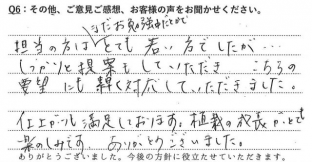 Q6：その他、ご意見ご感想、お客様の声をお聞かせください。
まだお勉強中だとかで
担当の方は とても 若い方でしたが…
しっかりと提案もしていただき こちらの
要望にも 軽く対応していただきました。
仕上がりも満足しております。植栽の成長がとても
楽しみです。ありがとうございました。
ありがとうございました。今後の方針に役立たせていただきます。